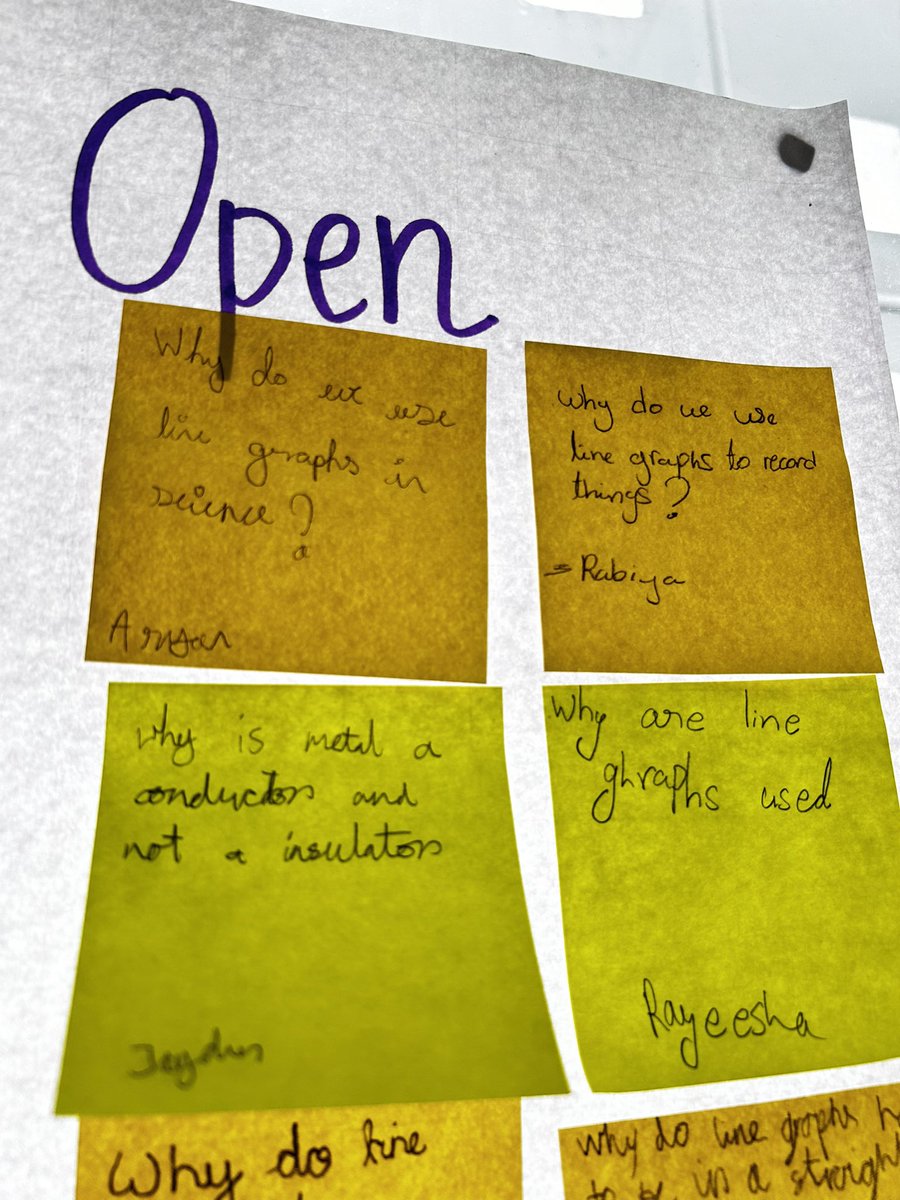 Open
Why do we use
line graphs in
science?
Why do we use
line graphs to record
things?
Rabiya
Why is metal a
conductors and
not a insulators
Why are line
ghraphs used
Rayeesha
Why do line
why do line graphs
in a straight